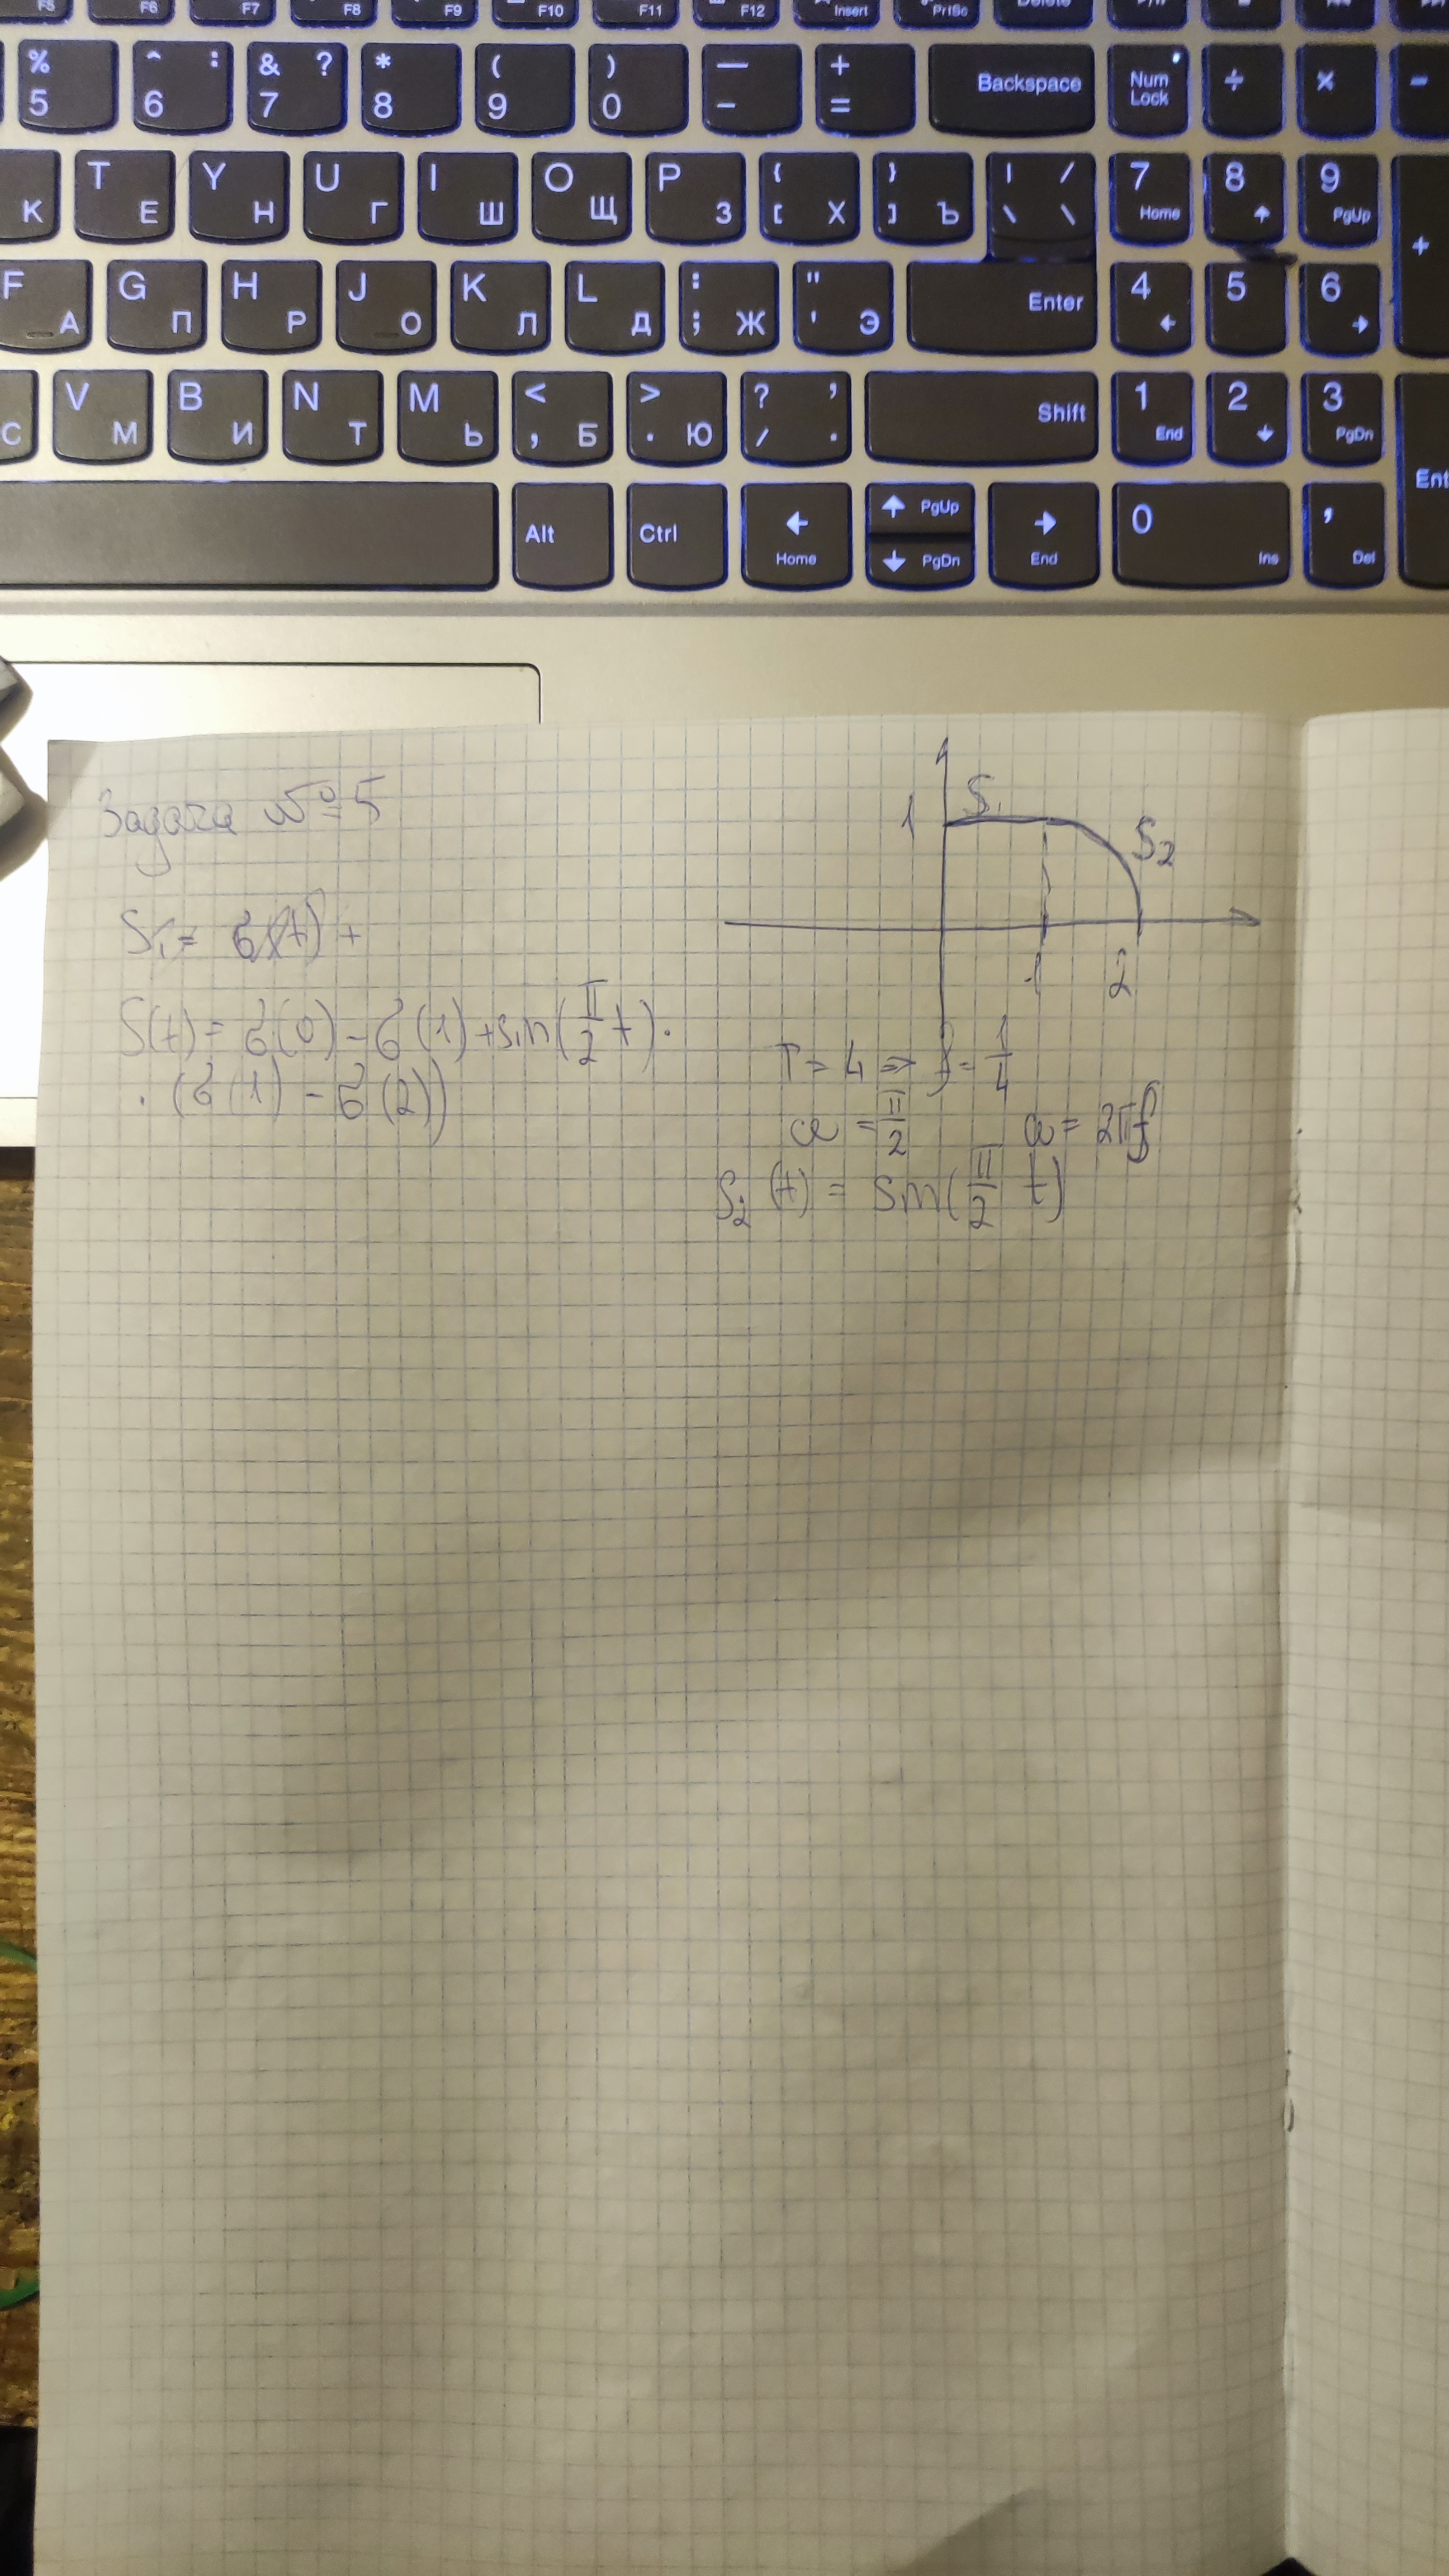 F5 F6 F7 F8 F9 F10 F11 F12 Insert PrtSc Delete
% 5 ^ : 6 & ? 7 * 8 ( 9 ) 0 — - + = Backspace Num Lock ÷ × -
К T Е Y Н U Г I Ш O Щ P З { [ Х } ] Ъ | / \ \ 7 Home 8 9 PgUp +
F А G П H Р J О K Л L Д : ; Ж " ' Э Enter 4 5 6
С V М B И N Т M Ь < , Б > . Ю ? , / . Shift 1 End 2 3 PgDn
Alt Ctrl Home PgUp PgDn End 0 Ins , Del Ent
Задача №5
S₁ = σ(t) +
S(t) = σ(0) - σ(1) + sin(π/2 t) ·
· (σ(1) - σ(2))
1 S₁ S₂
1 2
T = 4 => f = 1/4
ω = π/2 ω = 2πf
S₂(t) = sin(π/2 t)